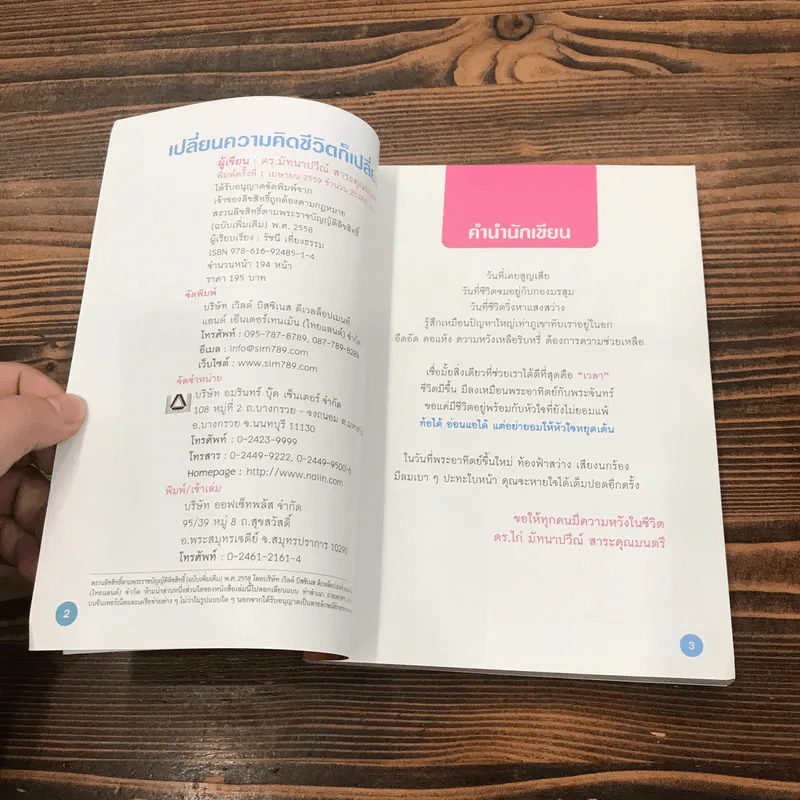 เปลี่ยนความคิดชีวิตก็เปลี่ย
ผู้เขียน : ดร.มัทนาปวีณ์ สาระคุณม
พิมพ์ครั้งที่ 1 เมษายน 2559 จำนวน 20,000
ได้รับอนุญาตจัดพิมพ์จาก
เจ้าของลิขสิทธิ์ถูกต้องตามกฎหมาย
สงวนลิขสิทธิ์ตามพระราชบัญญัติลิขสิทธิ์
(ฉบับเพิ่มเติม) พ.ศ. 2558
ผู้เรียบเรียง : รัชนี เที่ยงธรรม
ISBN 978-616-92485-1-4
จำนวนหน้า 194 หน้า
ราคา 195 บาท
จัดพิมพ์
บริษัท เวิลด์ บิสซิเนส ดีเวลล็อปเมนท์
แอนด์ เอ็นเตอร์เทนเม้น (ไทยแลนด์) จำกัด
โทรศัพท์ : 095-787-8789, 087-789-8289
อีเมล : info@sim789.com
เว็บไซต์ : www.sim789.com
จัดจำหน่าย
บริษัท อมรินทร์ บุ๊ค เซ็นเตอร์ จำกัด
108 หมู่ที่ 2 ถ.บางกรวย - จงถนอม ต.มหา
อ.บางกรวย จ.นนทบุรี 11130
โทรศัพท์ : 0-2423-9999
โทรสาร : 0-2449-9222, 0-2449-9500-6
Homepage : http://www.naiin.com
พิมพ์/เข้าเล่ม
บริษัท ออฟเซ็ทพลัส จำกัด
95/39 หมู่ 8 ถ.สุขสวัสดิ์
อ.พระสมุทรเจดีย์ จ.สมุทรปราการ 10290
โทรศัพท์ : 0-2461-2161-4
สงวนลิขสิทธิ์ตามพระราชบัญญัติลิขสิทธิ์ (ฉบับเพิ่มเติม) พ.ศ. 2558 โดยบริษัท เวิลด์ บิสซิเนส
(ไทยแลนด์) จำกัด ห้ามนำส่วนหนึ่งส่วนใดของหนังสือเล่มนี้ไปลอกเลียนแบบ ทำสำเนา
บนอินเทอร์เน็ตและเครือข่ายต่าง ๆ ไม่ว่าในรูปแบบใด ๆ นอกจากได้รับอนุญาตเป็นลายลักษณ์อักษร
2
คำนำนักเขียน
วันที่เคยสูญเสีย
วันที่ชีวิตจมอยู่กับกองมรสุม
วันที่ชีวิตวิ่งหาแสงสว่าง
รู้สึกเหมือนปัญหาใหญ่เท่าภูเขาทับเราอยู่ในอก
อึดอัด คอแห้ง ความหวังเหลือริบหรี่ ต้องการความช่วยเหลือ
เชื่อมั้ยสิ่งเดียวที่ช่วยเราได้ดีที่สุดคือ “เวลา”
ชีวิตมีขึ้น มีลงเหมือนพระอาทิตย์กับพระจันทร์
ขอแค่มีชีวิตอยู่พร้อมกับหัวใจที่ยังไม่ยอมแพ้
ท้อได้ อ่อนแอได้ แต่อย่ายอมให้หัวใจหยุดเต้น
ในวันที่พระอาทิตย์ขึ้นใหม่ ท้องฟ้าสว่าง เสียงนกร้อง
มีลมเบา ๆ ปะทะใบหน้า คุณจะหายใจได้เต็มปอดอีกครั้ง
ขอให้ทุกคนมีความหวังในชีวิต
ดร.ไก่ มัทนาปวีณ์ สาระคุณมนตรี
3